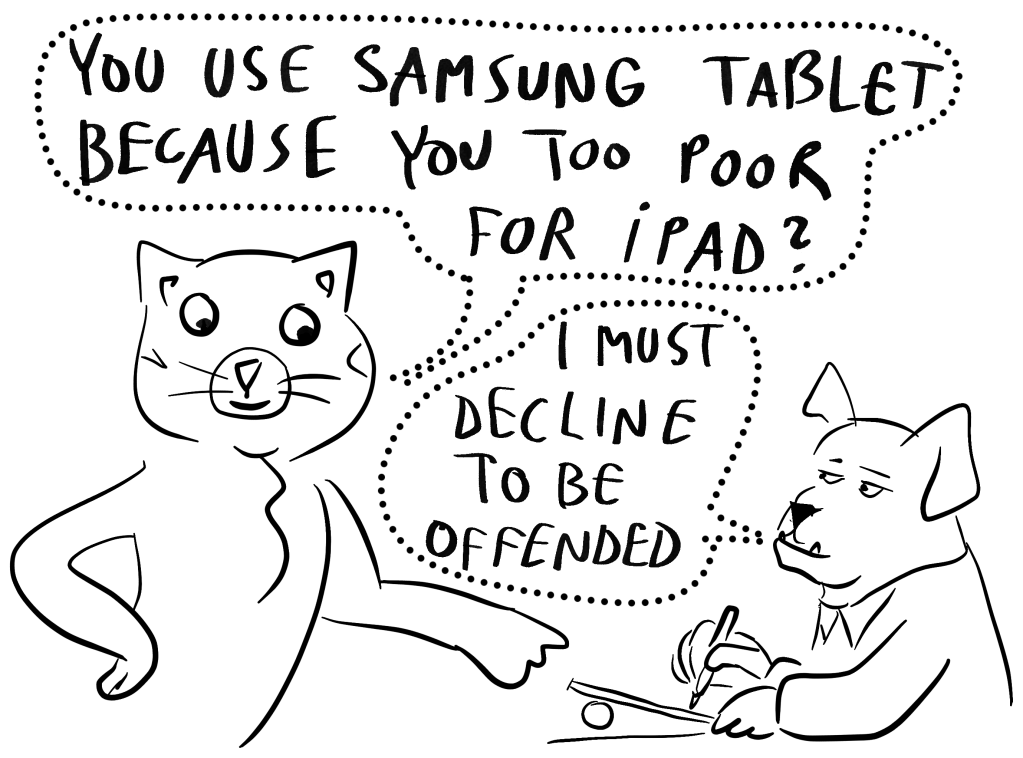 YOU USE SAMSUNG TABLET
BECAUSE YOU TOO POOR
FOR iPAD?
I MUST
DECLINE
TO BE
OFFENDED